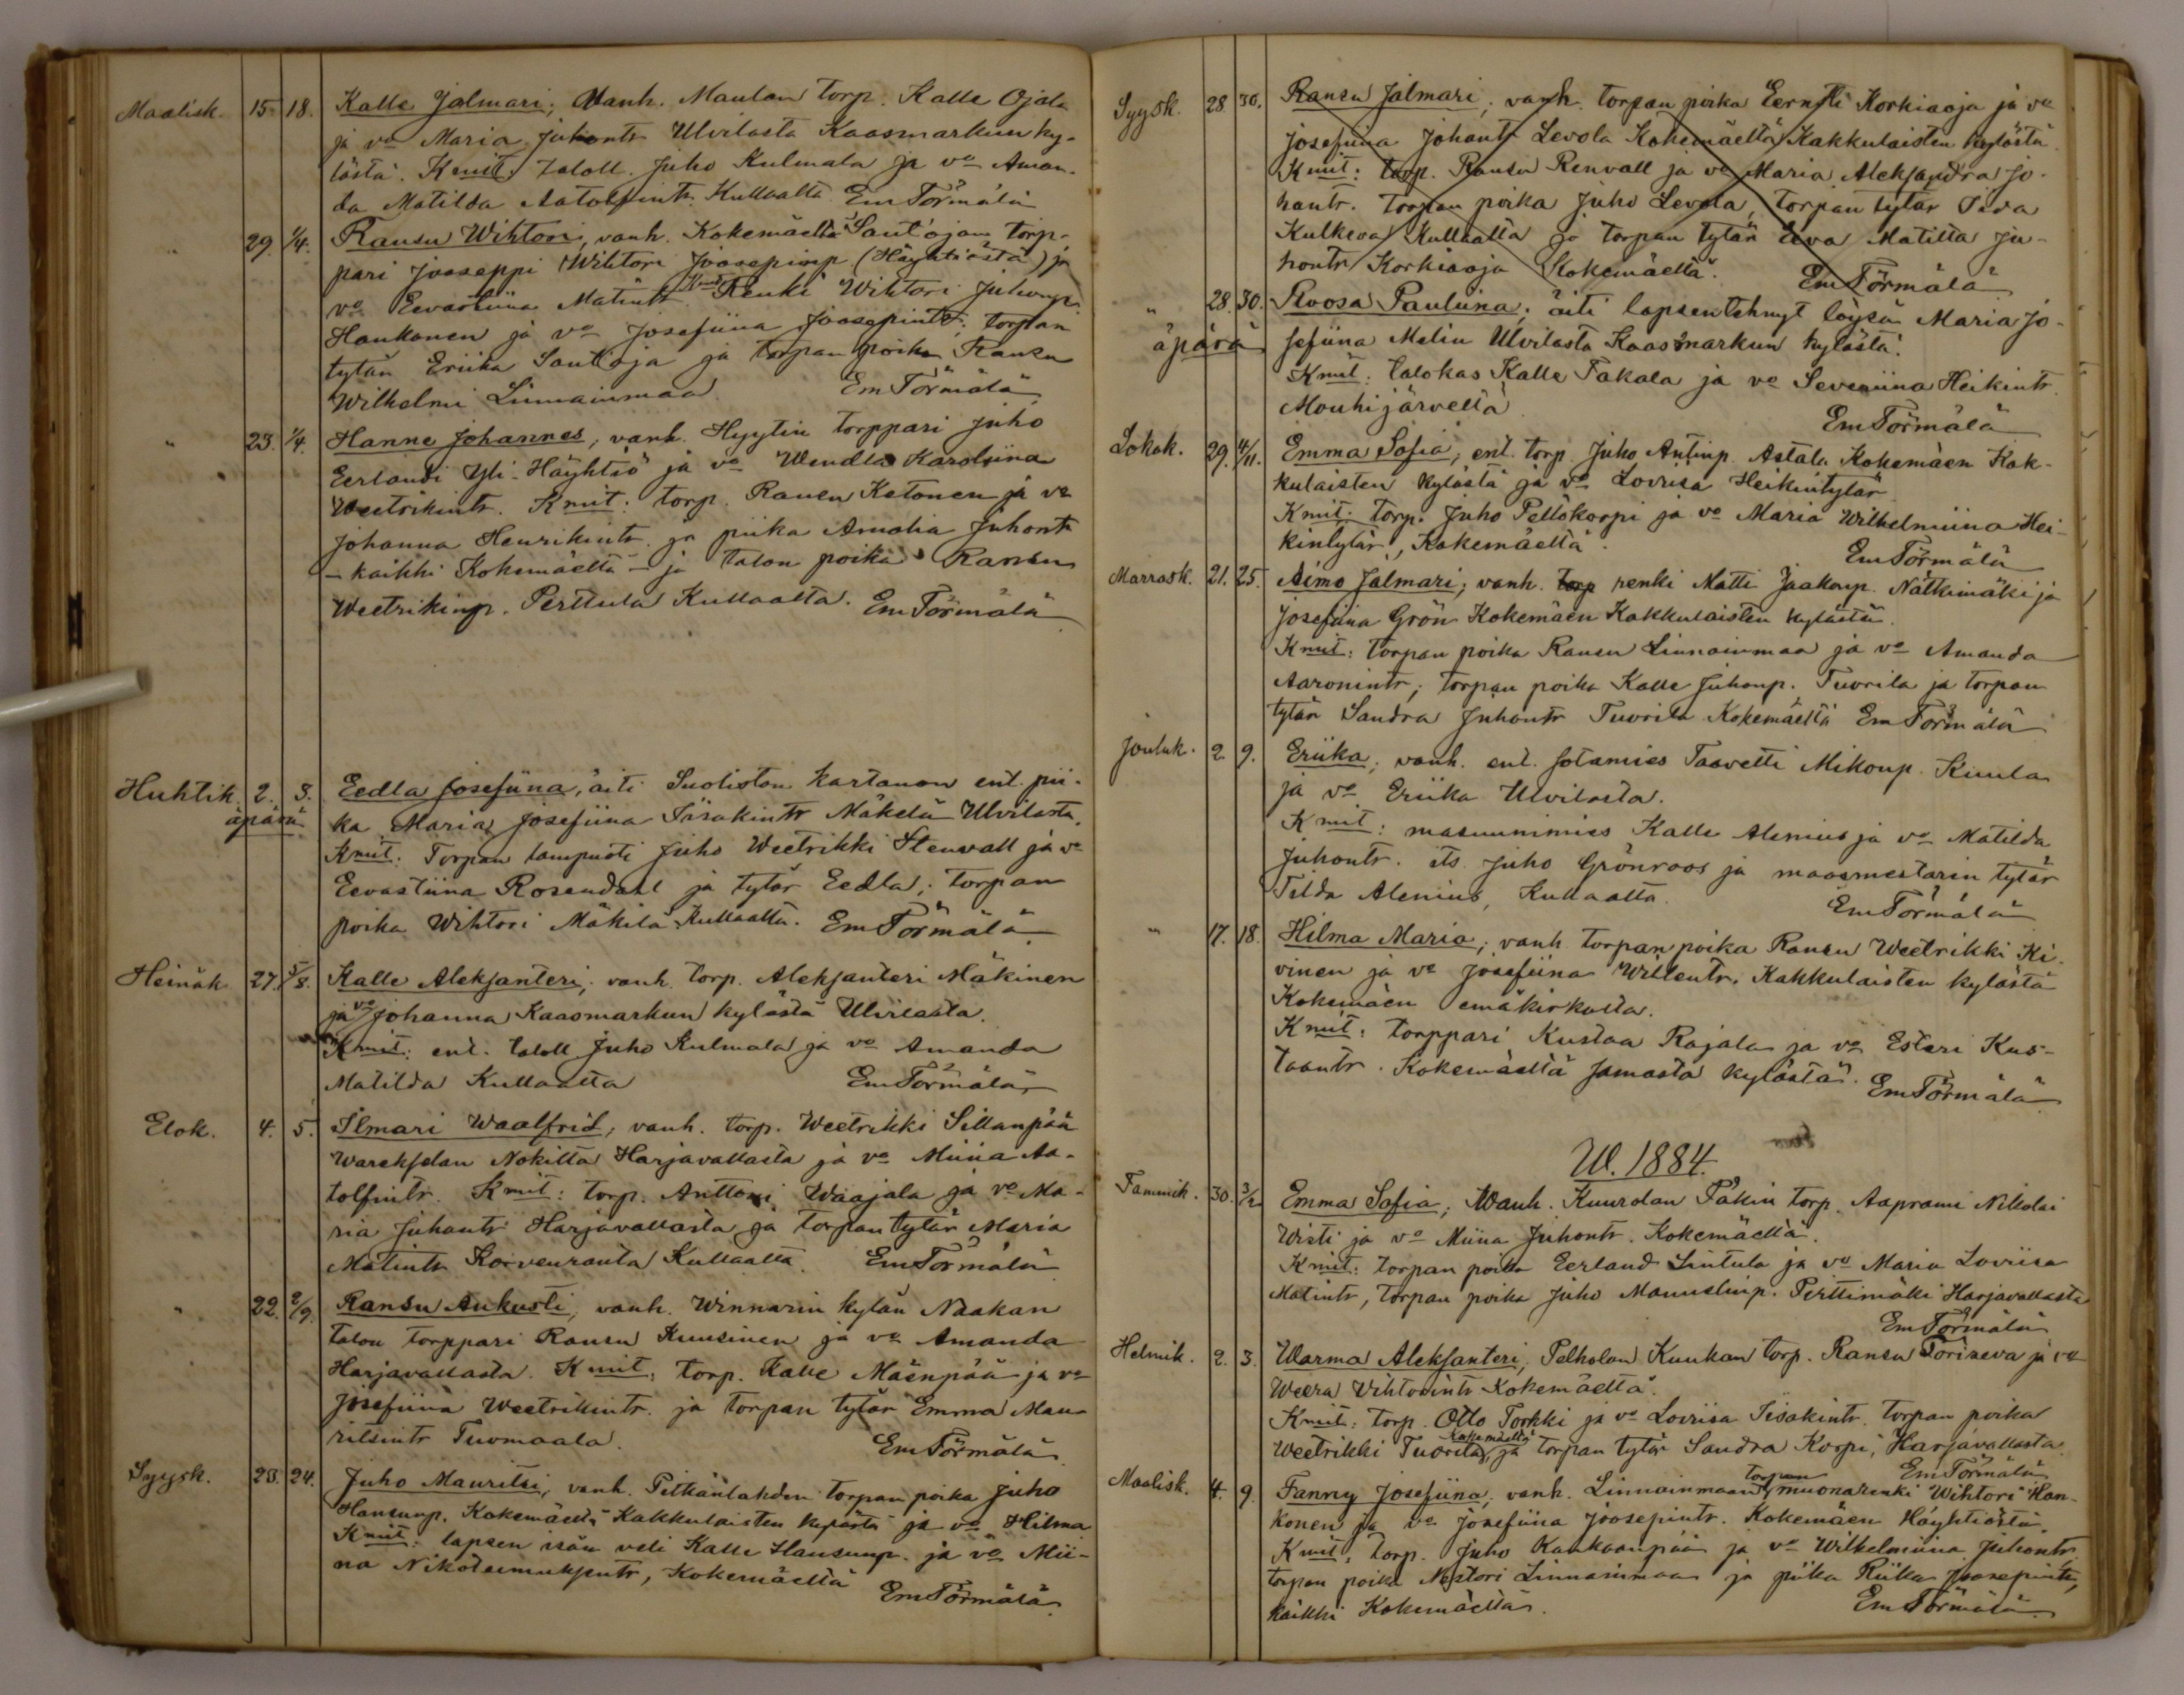 Maalisk. 15 18. Kalle Jalmari; Vanh. Maulan torp. Kalle Ojala
ja vo Maria Juhontr Ulvilasta Kaasmarkun ky-
lästä. Kmit. taloll. Juho Kulmala ja vo Aman-
da Matilda Aatolfintr. Kullaalta. Em Törmälä
" 29. 1/4. Ransu Wihtori, vanh. Kokemäeltä Santojan torp-
pari Jooseppi Wihtori Joosepinp (Häyhtiöstä) ja
vo Eevastiina Matintr. Kmit Renki Wihtori Juhonp.
Hankonen ja vo Josefiina Joosepintr; torpan
tytär Eriika Santoja ja torpan poika Ransu
Wilhelmi Linnainmaa. Em Törmälä
" 23. 1/4. Hanne Johannes, vanh. Hyytin torppari Juho
Eerlandi Yli-Häyhtiö ja vo Wendla Karoliina
Weetrikintr. Kmit: torp. Ransu Ketonen ja vo
Johanna Henrikintr. ja piika Amalia Juhontr
- kaikki Kokemäeltä - ja talon poika Ransu
Weetrikinp. Perttula Kullaalta. Em Törmälä
Huhtik. 2. 3. Eedla Josefiina, äiti Suoliston kartanon ent. pii-
äpärä ka Maria Josefiina Iisakintr Mäkelä Ulvilasta.
Kmit: Torpan lampuoti Juho Weetrikki Stenvall ja vo
Eevastiina Rosendahl ja tytär Eedla; torpan
poika Wihtori Mäkilä Kullaalta. Em Törmälä
Heinäk 27. 5/8. Kalle Aleksanteri; vanh. torp. Aleksanteri Mäkinen
ja vo Johanna Kaasmarkun kylästä Ulvilasta.
Kmit: ent. taloll Juho Kulmala ja vo Amanda
Matilda Kullaalta Em Törmälä
Elok. 4. 5. Ilmari Waalfrid, vanh. torp. Weetrikki Sillanpää
Warekselan Nokilta Harjavallasta ja vo Miina Aa-
tolfintr. Kmit: torp. Anttoni Waajala ja vo Ma-
ria Juhontr Harjavallasta ja torpan tytär Maria
Matintr Korvenranta Kullaalta. Em Törmälä
" 22. 2/9. Ransu Aukusti, vanh. Winnarin kylän Naakan
talon torppari Ransu Kuusinen ja vo Amanda
Harjavallasta. Kmit: torp. Kalle Mäenpää ja vo
Josefiina Weetrikintr. ja torpan tytär Emma Mau-
ritsintr Tuomaala. Em Törmälä
Syysk. 23. 24. Juho Mauritsi, vanh. Pitkänlahden torpan poika Juho
Hansunp. Kokemäeltä Kakkulaisten kylästä ja vo Hilma
Kmit: lapsen isän veli Kalle Hansunp. ja vo Mii-
na Nikoteemuksentr, Kokemäeltä Em Törmälä
Syysk. 28. 30. Ransu Jalmari; vanh. torpan poika Eernsti Korkiaoja ja vo
Josefiina Johantr Levola Kokemäeltä Kakkulaisten kylästä.
Kmit: torp. Ransu Renvall ja vo Maria Aleksandra Jo-
hantr. torpan poika Juho Levola, torpan tytär Iida
Kulkeva Kullaalta ja torpan tytär Eeva Matilta Ju-
hontr Korkiaoja Kokemäeltä. Em Törmälä
" 28. 30. Roosa Pauliina; äiti lapsentehnyt löysä Maria Jo-
äpärä sefiina Malin Ulvilasta Kaasmarkun kylästä.
Kmit: talokas Kalle Takala ja vo Severiina Heikintr.
Mouhijärveltä Em Törmälä
Lokak. 29. 4/11. Emma Sofia, ent. torp. Juho Antinp. Astala Kokemäen Kak-
kulaisten kylästä ja vo Loviisa Heikintytär
Kmit: torp. Juho Peltokorpi ja vo Maria Wilhelmiina Hei-
kintytär, Kokemäeltä. Em Törmälä
Marrask. 21. 25. Aimo Jalmari; vanh. torp renki Matti Jaakonp. Nätkimäki ja
Josefiina Grön Kokemäen Kakkulaisten kylästä.
Kmit: torpan poika Ransu Linnainmaa ja vo Amanda
Aaronintr; torpan poika Kalle Juhonp. Tuorila ja torpan
tytär Sandra Juhontr Tuorila Kokemäeltä Em Törmälä
Jouluk. 2. 9. Eriika; vanh. ent. sotamies Taavetti Mikonp. Kuula
ja vo Eriika Ulvilasta.
Kmit: masuunimies Kalle Alenius ja vo Matilda
Juhontr. its. Juho Grönroos ja maasmestarin tytär
Tilda Alenius, Kullaalta. Em Törmälä
" 17. 18. Hilma Maria; vanh torpan poika Ransu Weetrikki Ki-
vinen ja vo Josefiina Willentr. Kakkulaisten kylästä
Kokemäen emäkirkolta.
Kmit: torppari Kustaa Rajala ja vo Esteri Kus-
taantr. Kokemäeltä samasta kylästä. Em Törmälä
W. 1884.
Tammik. 30. 3/2 Emma Sofia; Wanh. Kuurolan Päkin torp. Aaprami Nikolai
Wisti ja vo Miina Juhontr. Kokemäeltä.
Kmit: torpan poika Eerland Lintula ja vo Maria Loviisa
Matintr, torpan poika Juho Manuslinp. Perttimäki Harjavallasta
Em Törmälä
Helmik. 2. 3. Warma Aleksanteri, Pelholan Kuukan torp. Ransu Torineva ja vo
Weera Vihtorintr Kokemäeltä.
Kmit: torp. Otto Torkki ja vo Loviisa Iisakintr. torpan poika
Weetrikki Tuorila Kokemäeltä ja torpan tytär Sandra Korpi, Harjavallasta
Em Törmälä
Maalisk. 4. 9. Fanny Josefiina, vanh. Linnainmaan torpan muonarenki Wihtori Han-
konen ja vo Josefiina Joosepintr. Kokemäen Häyhtiöstä.
Kmit: torp. Juho Kankaanpää ja vo Wilhelmiina Juhontr
torpan poika Nestori Linnainmaa ja piika Riika Joosepintr,
kaikki Kokemäeltä. Em Törmälä